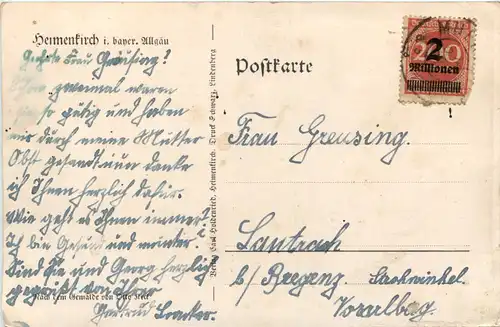 Heimenkirch i. bayer. Allgäu
Geehrte Frau Greusing!
Schon zweimal waren
Sie so gütig und haben
mir durch meine Mutter
Obst gesandt nun danke
ich Ihnen herzlich dafür.
Wie geht es Ihnen immer?
Ich bin Gesund und munter!
Sind Sie und Georg herzlich
gegrüßt von Ihrer
Nach dem Gemälde von Otto
Gertrud
Verlag Gast Holdenried, Heimenkirch. Druck Schwarz, Lindenberg
Postkarte
2
Millionen
Frau Greusing.
Lautrach
b/ Bregenz.
Vorarlbag.